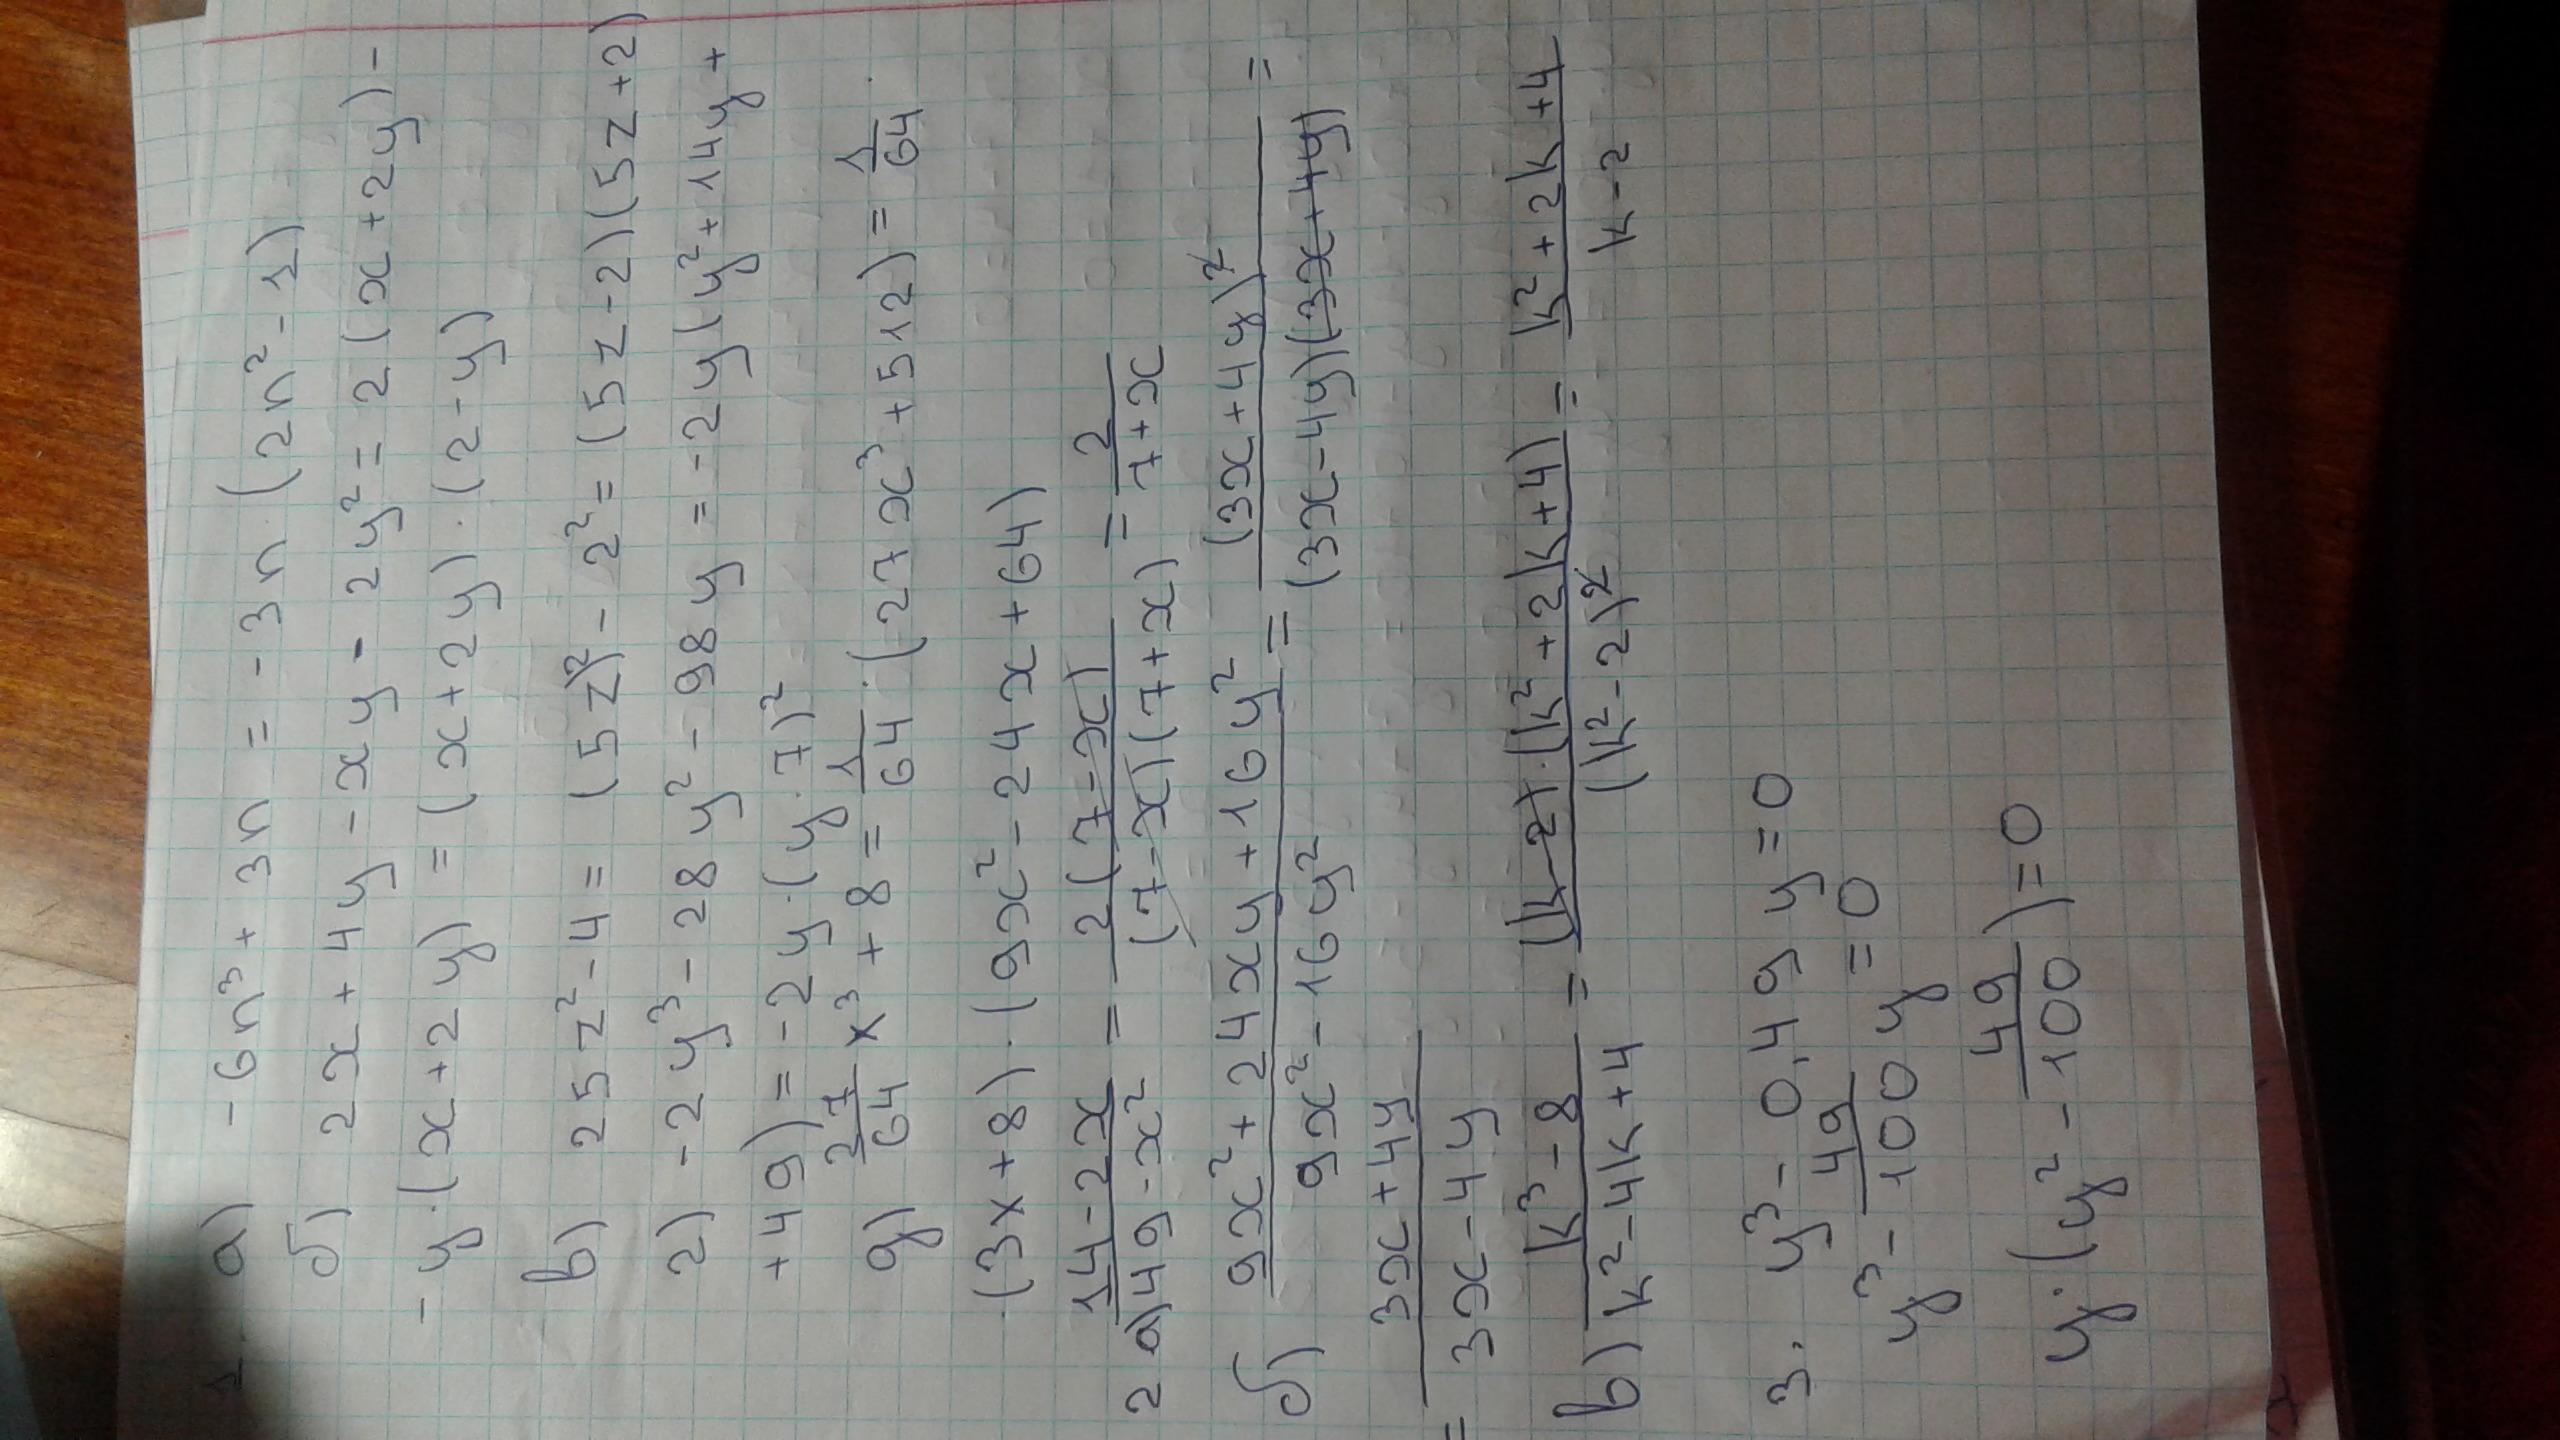 1. а) -6n³ + 3n = -3n · (2n² - 1)
б) 2x + 4y - xy - 2y² = 2(x + 2y) -
- y · (x + 2y) = (x + 2y) · (2 - y)
в) 25z² - 4 = (5z)² - 2² = (5z - 2)(5z + 2)
г) -2y³ - 28y² - 98y = -2y(y² + 14y +
+ 49) = -2y · (y · 7)²
д) 27/64 x³ + 8 = 1/64 · (27x³ + 512) = 1/64 ·
· (3x + 8) · (9x² - 24x + 64)
2 а) (14 - 2x)/(49 - x²) = 2(7 - x)/((7 - x)(7 + x)) = 2/(7 + x)
б) (9x² + 24xy + 16y²)/(9x² - 16y²) = (3x + 4y)²/((3x - 4y)(3x + 4y)) =
= (3x + 4y)/(3x - 4y)
в) (k³ - 8)/(k² - 4k + 4) = (k - 2) · (k² + 2k + 4)/(k² - 2)² = (k² + 2k + 4)/(k - 2)
3. y³ - 0,49y = 0
y³ - 49/100 y = 0
y · (y² - 49/100) = 0